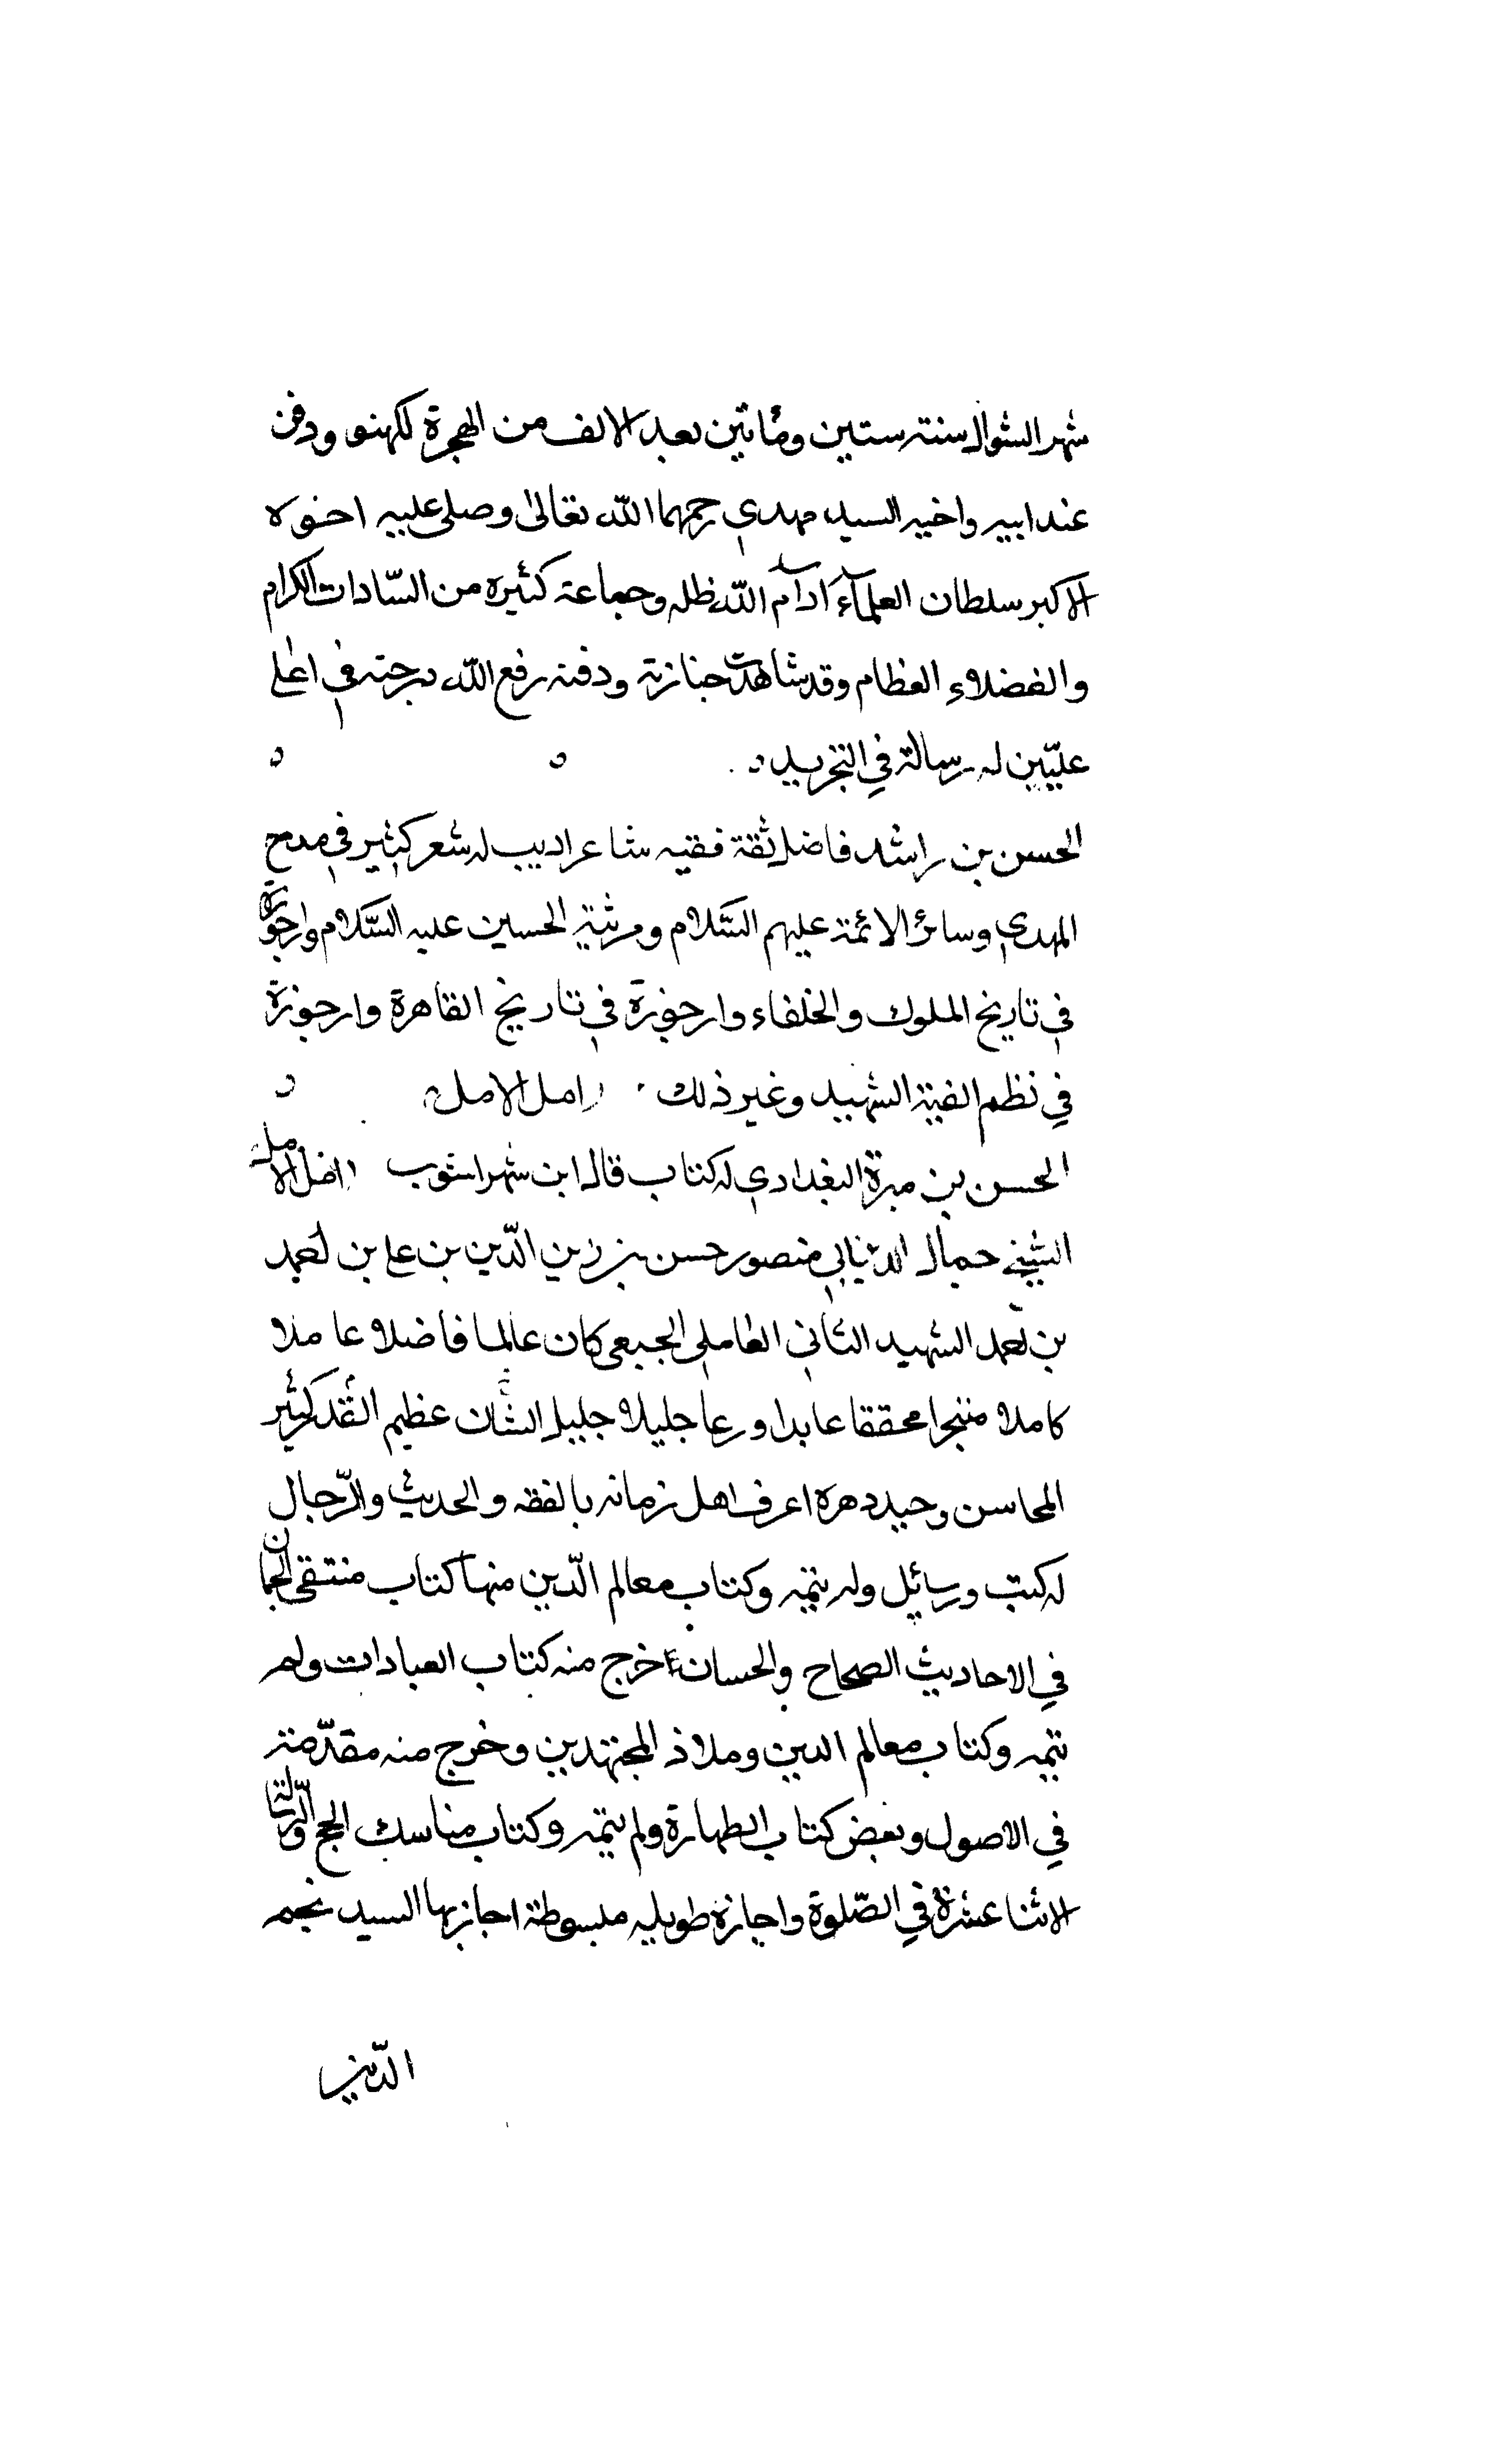 شهر الشوال سنة ستين ومأتين بعد الالف من الهجرة لكهنو ودفن
عند ابيه واخيه السيد مهدي رحمهما الله تعالى وصلى عليه اخوه
الاكبر سلطان العلمآء ادام الله ظله وجماعة كثيرة من السّادات الكرام
والفضلاء العظام وقد شاهدت جنازته ودفنه رفع الله درجته في اعلى
عليّين له رسالة في التجريد
الحسن بن راشد فاضل ثقة فقيه شاعر اديب له شعر كثير في مدح
المهدي وسائر الائمة عليهم السّلام ومرثية الحسين عليه السّلام وارجوزة
في تاريخ الملوك والخلفاء وارجوزة في تاريخ القاهرة وارجوزة
في نظم الفية الشهيد وغير ذلك امل الامل
الحسن بن مبرة البغدادي له كتاب قاله ابن شهراشوب الامل
الشيخ جمال الدين ابي منصور حسن بن زين الدّين بن علي بن احمد
بن محمد الشهيد الثاني العاملي الجبعي كان عالما فاضلا عاملا
كاملا متبحرا محققا عابدا ورعا جليلا جليل الشان عظيم القدر كثير
المحاسن وحيد دهره اعرف اهل زمانه بالفقه والحديث والرّجال
له كتب ورسائل وله يتمه وكتاب معالم الدّين منها كتاب منتقى الجمان
في الاحاديث الصحاح والحسان اخرج منه كتاب العبادات ولم
يتمه وكتاب معالم الدين وملاذ المجتهدين وخرج منه مقدّمته
في الاصول وبعض كتاب الطهارة ولم يتمه وكتاب مناسك الحج والرّسالة
الاثنا عشرة في الصّلوة واجازة طويله مبسوطة اجازها السيد نجم
الدّين